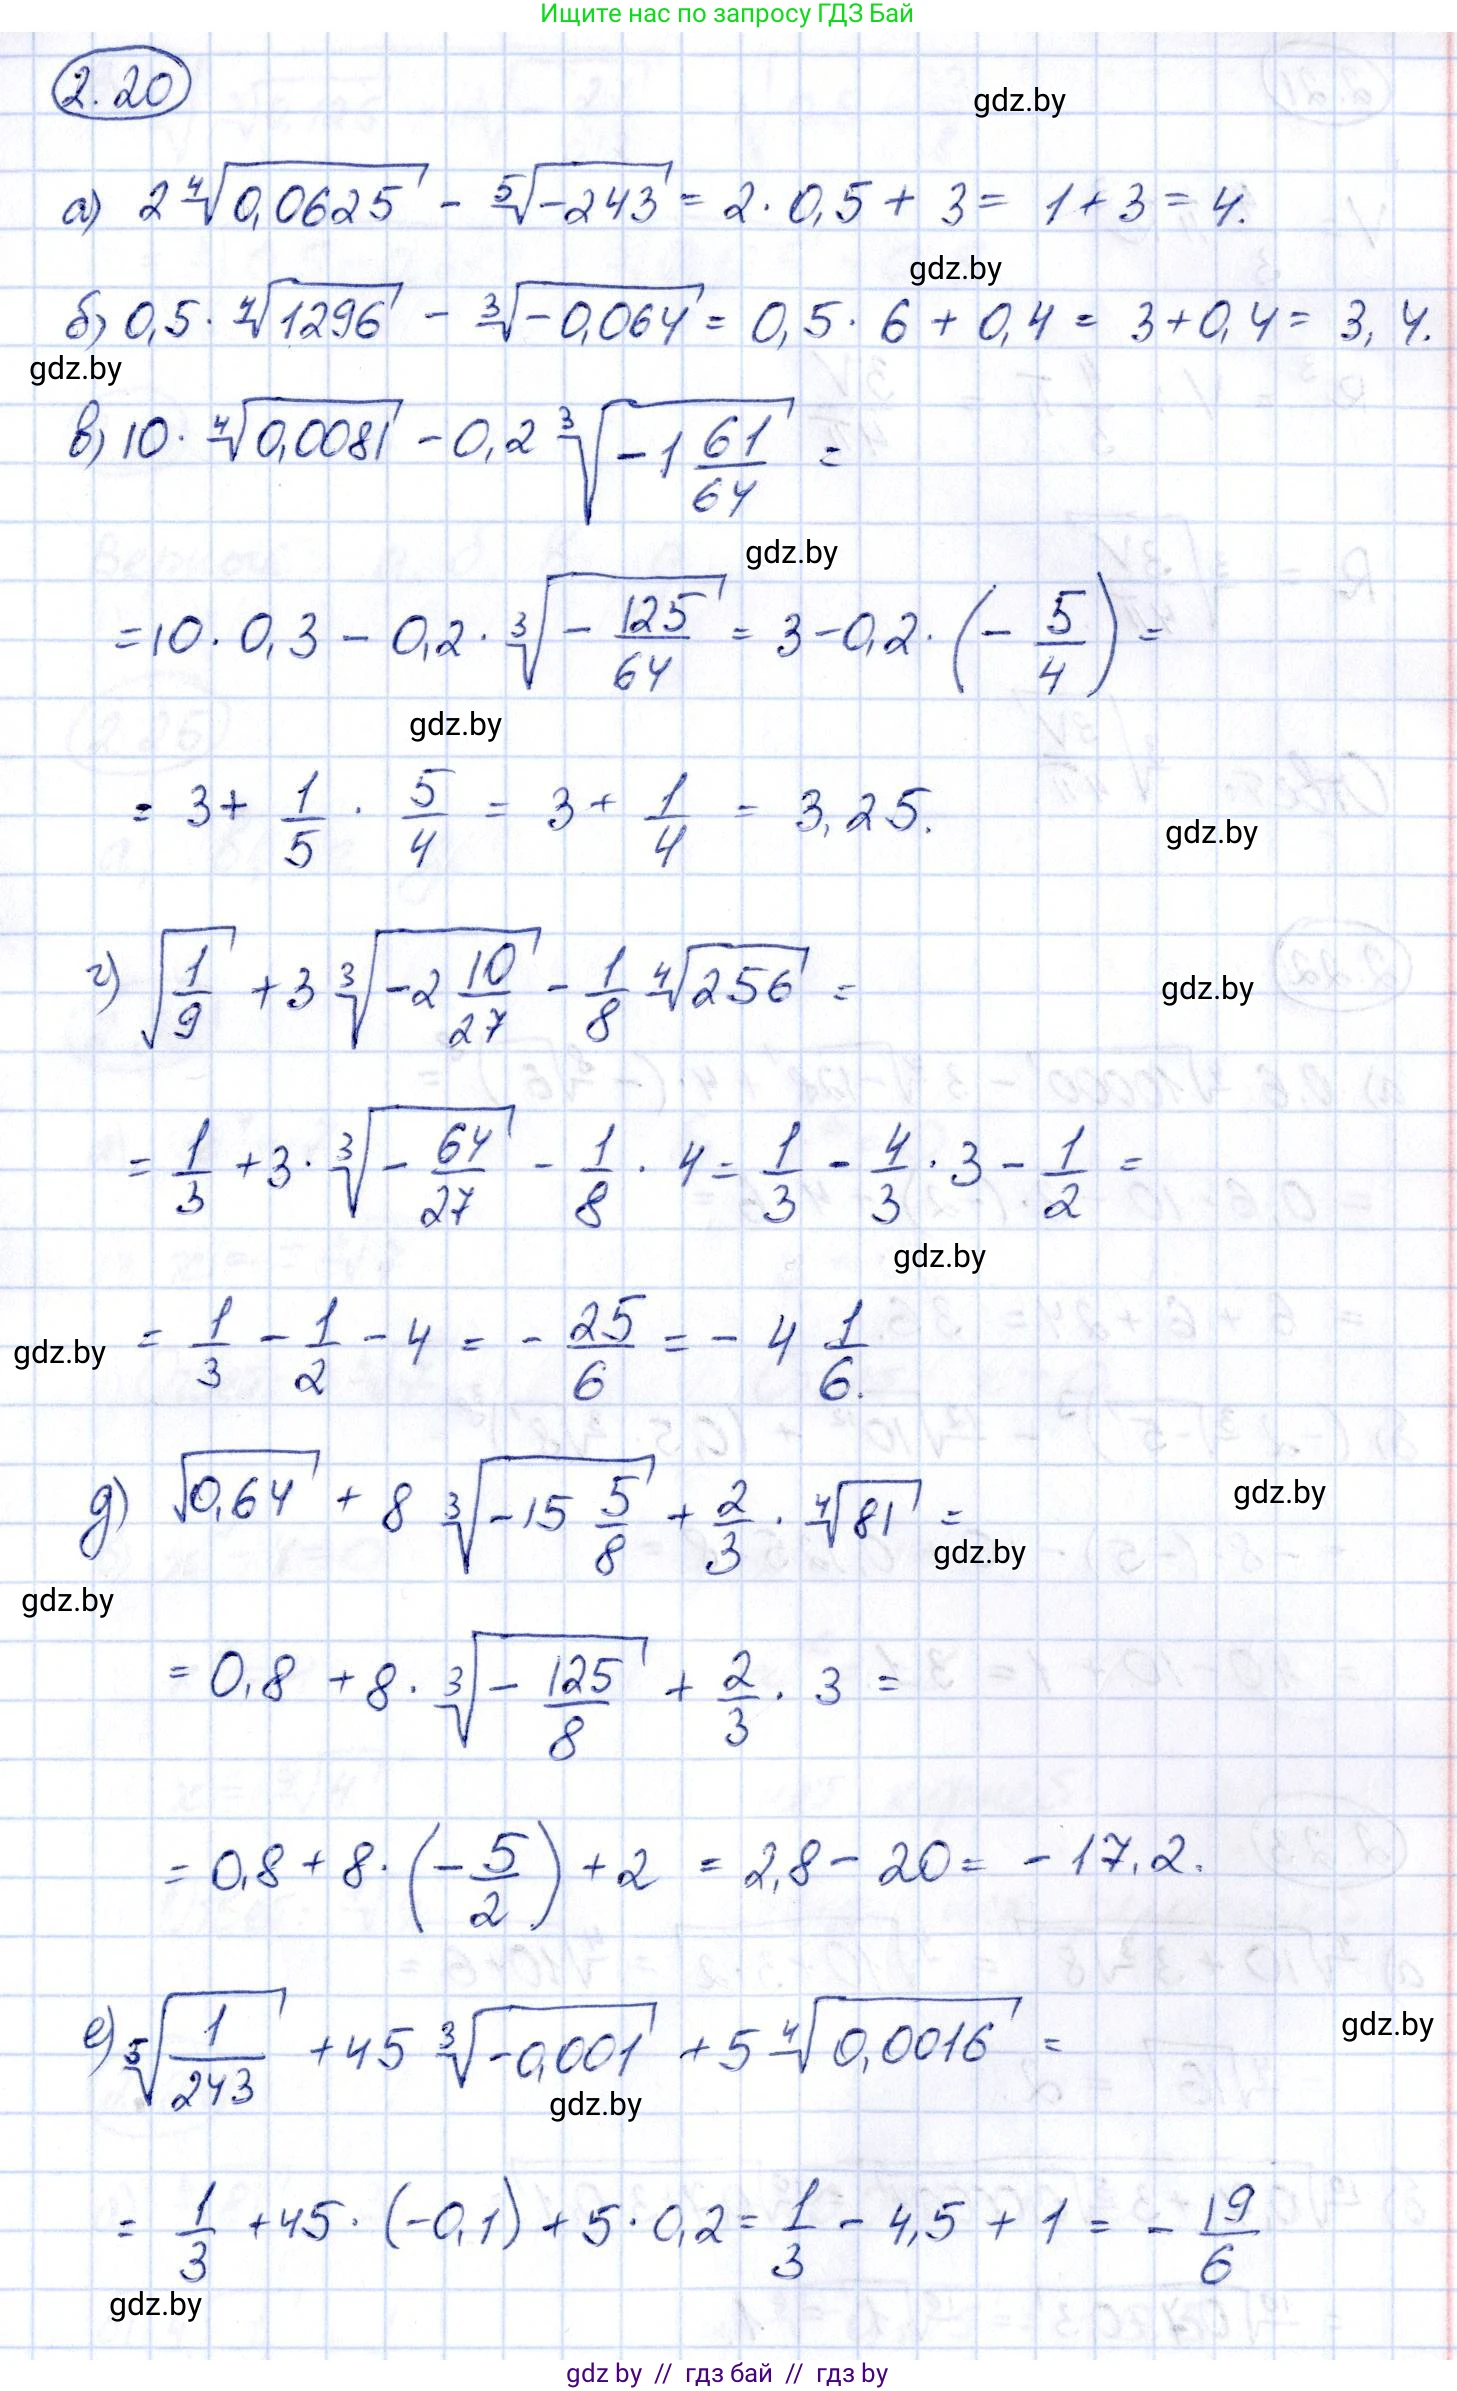 Ищите нас по запросу ГДЗ Бай
2.20
gdz.by
а) 2∜0,0625 − ⁵√−243 = 2·0,5 + 3 = 1+3 = 4.
gdz.by
б) 0,5·∜1296 − ∛−0,064 = 0,5·6 + 0,4 = 3+0,4 = 3,4.
gdz.by
в) 10·∜0,0081 − 0,2 ∛(−1 61/64) =
gdz.by
= 10·0,3 − 0,2·∛(−125/64) = 3−0,2·(−5/4) =
gdz.by
= 3 + 1/5 · 5/4 = 3 + 1/4 = 3,25.
gdz.by
г) √(1/9) + 3 ∛(−2 10/27) − 1/8 ∜256 =
gdz.by
= 1/3 + 3·∛(−64/27) − 1/8 · 4 = 1/3 − 4/3 · 3 − 1/2 =
gdz.by
= 1/3 − 1/2 − 4 = − 25/6 = − 4 1/6.
gdz.by
д) √0,64 + 8 ∛(−15 5/8) + 2/3 · ∜81 =
gdz.by
gdz.by
gdz.by
= 0,8 + 8·∛(−125/8) + 2/3 · 3 =
= 0,8 + 8·(−5/2) + 2 = 2,8 − 20 = −17,2.
е) ⁵√(1/243) + 45 ∛−0,001 + 5 ∜0,0016 =
gdz.by
gdz.by
= 1/3 + 45·(−0,1) + 5·0,2 = 1/3 − 4,5 + 1 = − 19/6
gdz.by
gdz by // гдз бай // гдз by